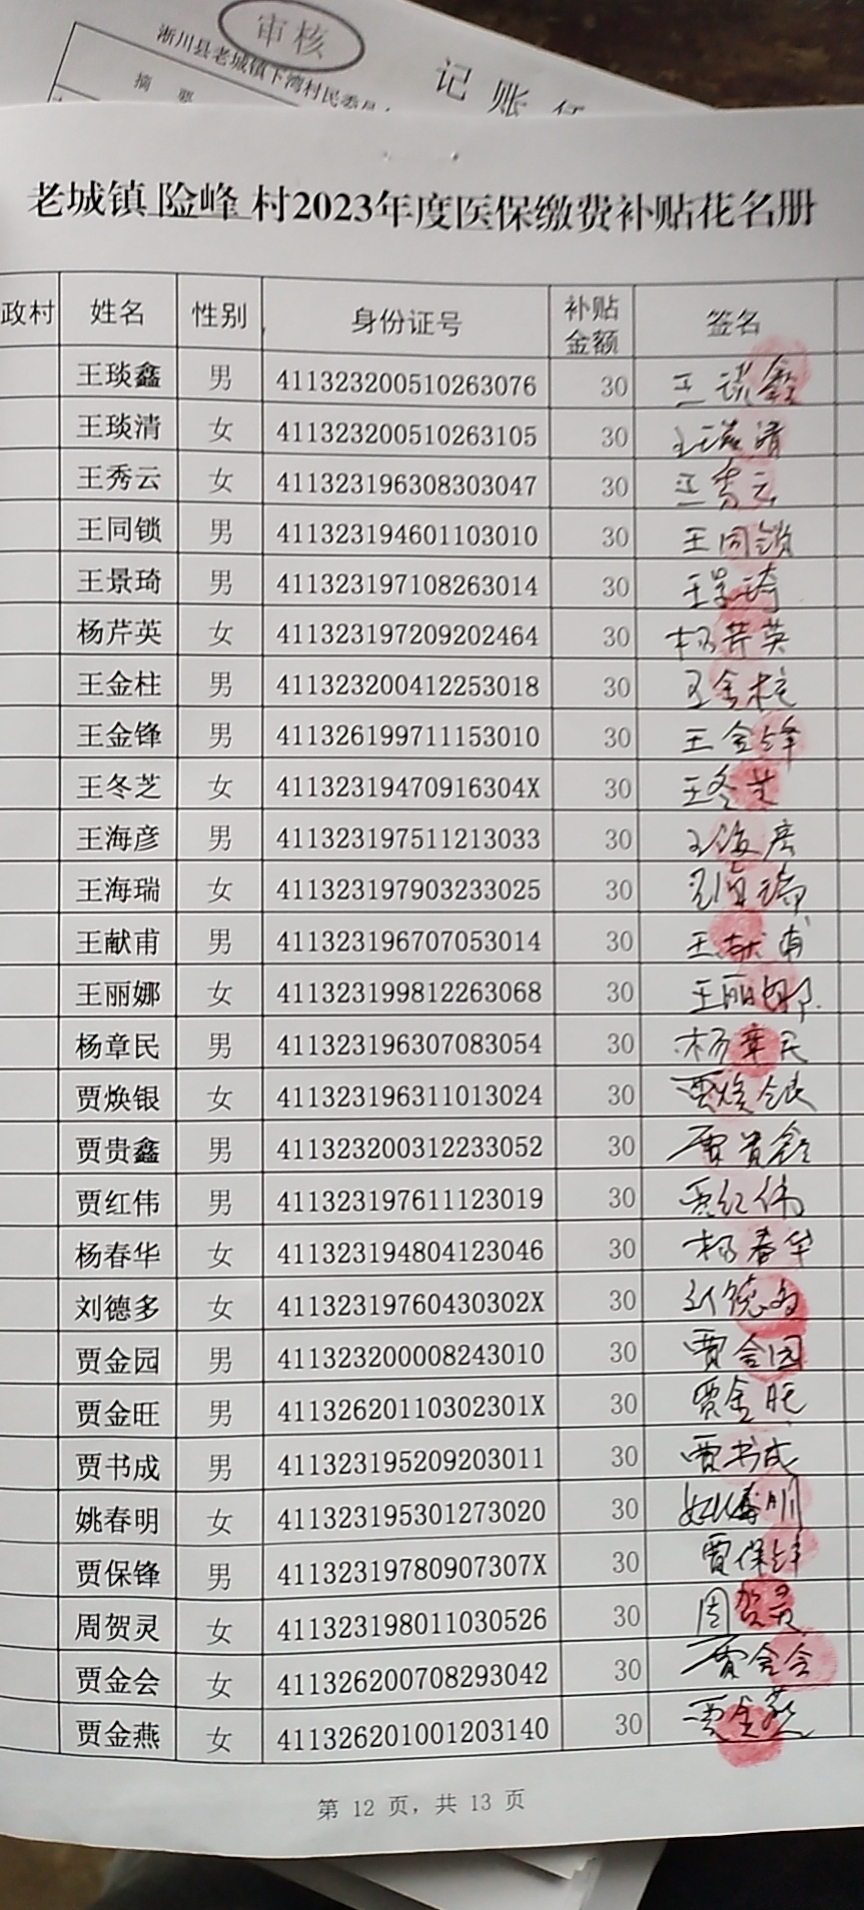 审核
淅川县老城镇下湾村民委员
记账
摘 要
老城镇 险峰 村2023年度医保缴费补贴花名册
政村 姓名 性别 身份证号 补贴金额 签名
王琰鑫 男 411323200510263076 30 王琰鑫
王琰清 女 411323200510263105 30 王琰清
王秀云 女 411323196308303047 30 王秀云
王同锁 男 411323194601103010 30 王同锁
王景琦 男 411323197108263014 30 王景琦
杨芹英 女 411323197209202464 30 杨芹英
王金柱 男 411323200412253018 30 王金柱
王金锋 男 411326199711153010 30 王金锋
王冬芝 女 41132319470916304X 30 王冬芝
王海彦 男 411323197511213033 30 王海彦
王海瑞 女 411323197903233025 30 王海瑞
王献甫 男 411323196707053014 30 王献甫
王丽娜 女 411323199812263068 30 王丽娜
杨章民 男 411323196307083054 30 杨章民
贾焕银 女 411323196311013024 30 贾焕银
贾贵鑫 男 411323200312233052 30 贾贵鑫
贾红伟 男 411323197611123019 30 贾红伟
杨春华 女 411323194804123046 30 杨春华
刘德多 女 41132319760430302X 30 刘德多
贾金园 男 411323200008243010 30 贾金园
贾金旺 男 41132620110302301X 30 贾金旺
贾书成 男 411323195209203011 30 贾书成
姚春明 女 411323195301273020 30 姚春明
贾保锋 男 41132319780907307X 30 贾保锋
周贺灵 女 411323198011030526 30 周贺灵
贾金会 女 411326200708293042 30 贾金会
贾金燕 女 411326201001203140 30 贾金燕
第 12 页，共 13 页